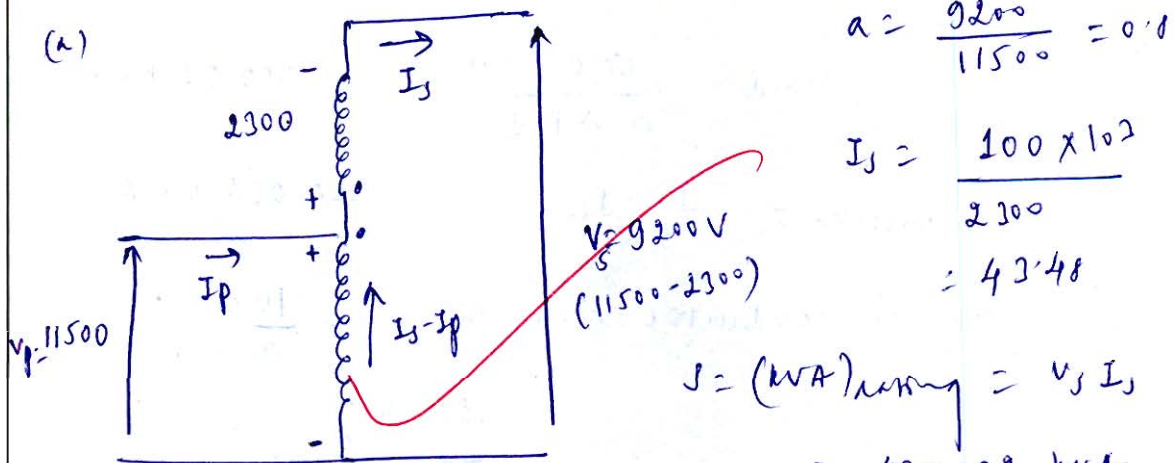 (a)
-
2300
+
+
Is
Ip
Vp=11500
Is-Ip
-
Vs=9200V
(11500-2300)
a = 9200 / 11500 = 0.8
Is = 100 × 10³ / 2300
= 43.48
S = (kVA)rating = Vs Is